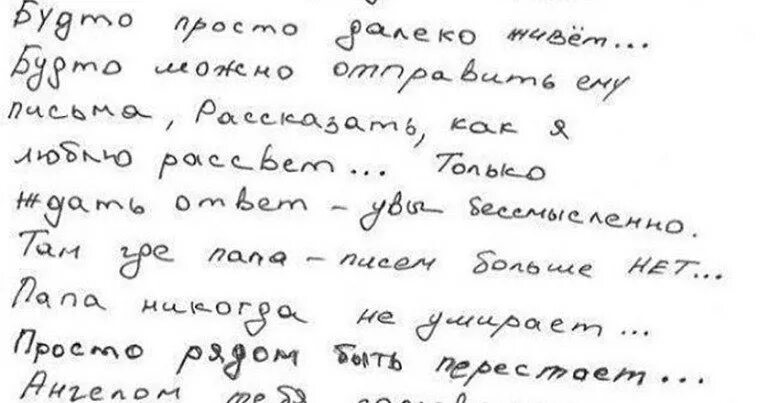 Будто просто далеко живёт...
Будто можно отправить ему
письма, Рассказать, как я
люблю рассвет... Только
ждать ответ - увы бессмысленно.
Там где папа - писем больше НЕТ...
Папа никогда не умирает...
Просто рядом быть перестает...
Ангелом тебя